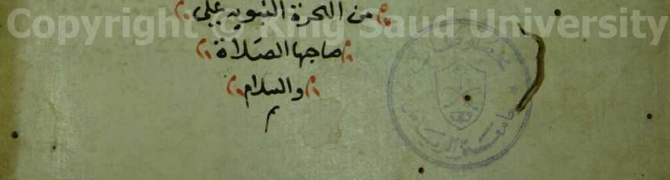 Copyright © King Saud University
من الهجرة النبويه على
صاحبها الصلاة
والسلام
م